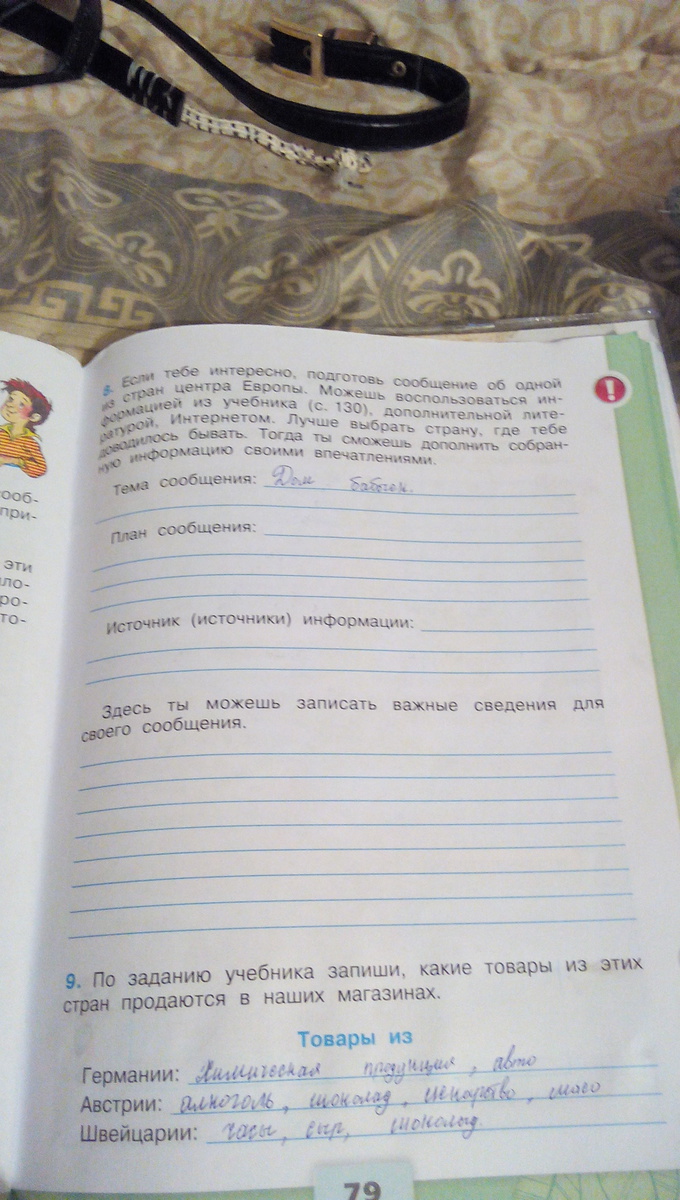 8. Если тебе интересно, подготовь сообщение об одной
из стран центра Европы. Можешь воспользоваться ин-
формацией из учебника (с. 130), дополнительной лите-
ратурой, Интернетом. Лучше выбрать страну, где тебе
доводилось бывать. Тогда ты сможешь дополнить собран-
ную информацию своими впечатлениями.
Тема сообщения: Дом бабочек.
План сообщения:
Источник (источники) информации:
Здесь ты можешь записать важные сведения для
своего сообщения.
9. По заданию учебника запиши, какие товары из этих
стран продаются в наших магазинах.
Товары из
Германии: Химическая продукция, авто
Австрии: алкоголь, шоколад, лекарство, мясо
Швейцарии: часы, сыр, шоколад.
79
ооб-
при-
эти
ло-
ро-
то-